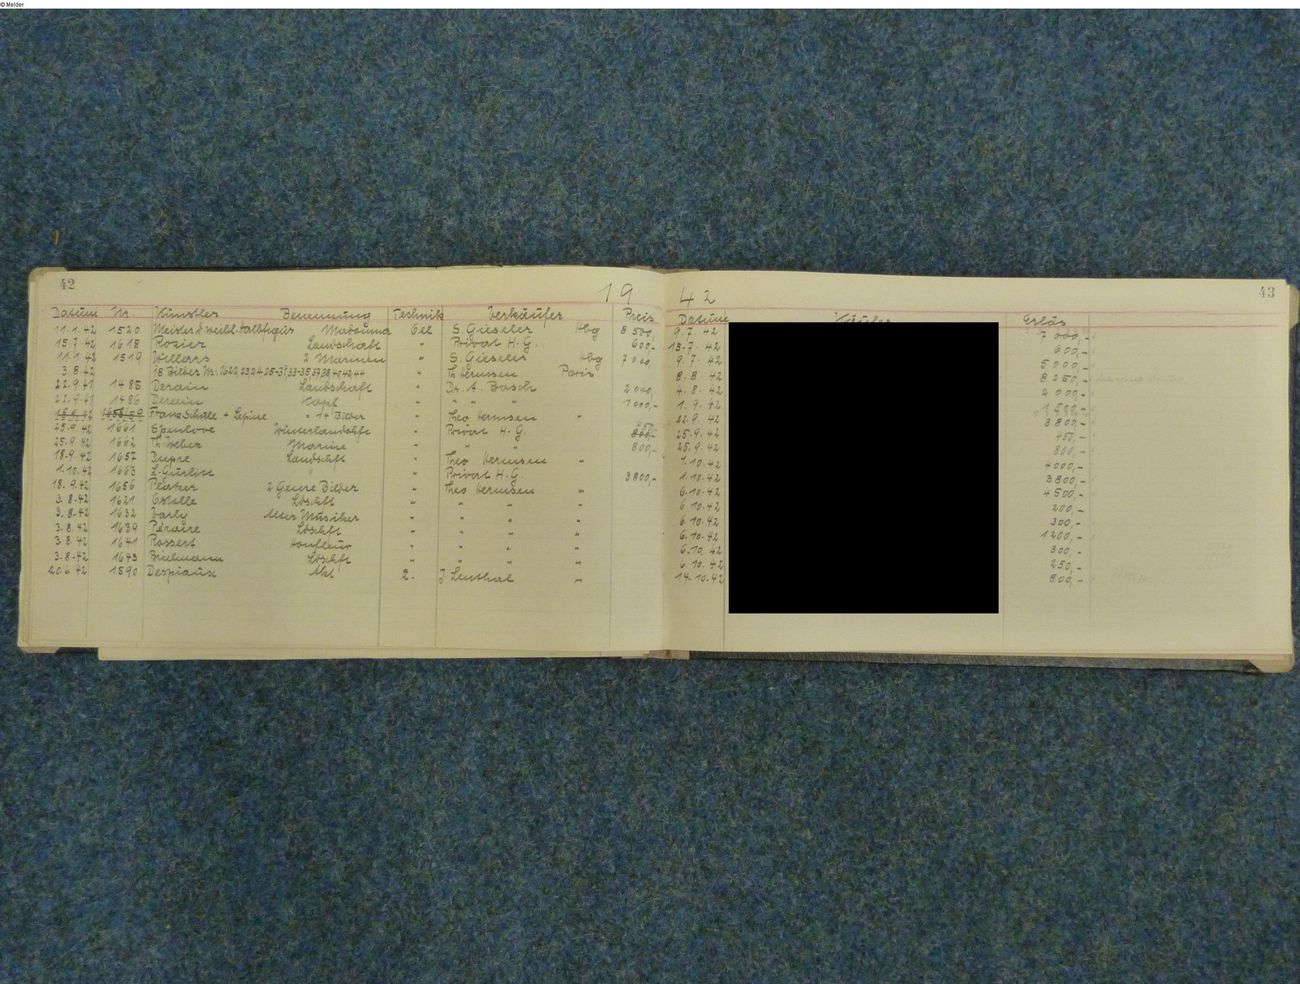 © Melder
42
19 42
43
Datum Nr. Künstler Benennung Technik Verkäufer Preis Datum Erlös
11.1.42 1520 Meister d. weibl. Halbfigur Madonna Oel S. Gieseler Hbg 8500,- 9.7.42 7000,-
15.7.42 1618 Rozier Landschaft " Privat H.G. 600,- 15.7.42 600,-
11.1.42 1519 Willars 2 Marinen " S. Gieseler Hbg 7000,- 9.7.42 5000,-
3.8.42 18 Bilder Nr: " Th Hermsen Paris 8.8.42 8250,-
22.9.41 1485 Derain Landschaft " Dr. A. Bosch 2000,- 4.8.42 2000,-
22.9.41 1486 Derain Kopf " " " " 1000,- 1.9.42
Franz Schule + Lepine " 1 + Bilder " Theo Hermsen " 22.9.42 3800,-
25.9.42 1661 Spenlove Winterlandschft " Privat H-G. 450,- 25.9.42 450,-
25.9.42 1662 Th. Weber Marine " " " 800,- 25.9.42 800,-
18.9.42 1657 Dupre Landschft " Theo Hermsen " 1.10.42 4000,-
1.10.42 1663 L. Gurlitt " " Privat H.G. 3800,- 1.10.42 3800,-
18.9.42 1656 2 Genre Bilder " Theo Hermsen " 6.10.42 4500,-
3.8.42 1621 Lдschft " " " " 6.10.42 200,-
3.8.42 1632 Alter Musiker " " " " 6.10.42 300,-
3.8.42 1639 Péraire Ldschft " " " " 6.10.42 1200,-
3.8.42 1641 Rossert " " " " 6.10.42 300,-
3.8.42 1643 Ldschft " " " " 6.10.42 250,-
20.6.42 1590 Despiaux Akt Z. J Lenthal " 14.10.42 800,-